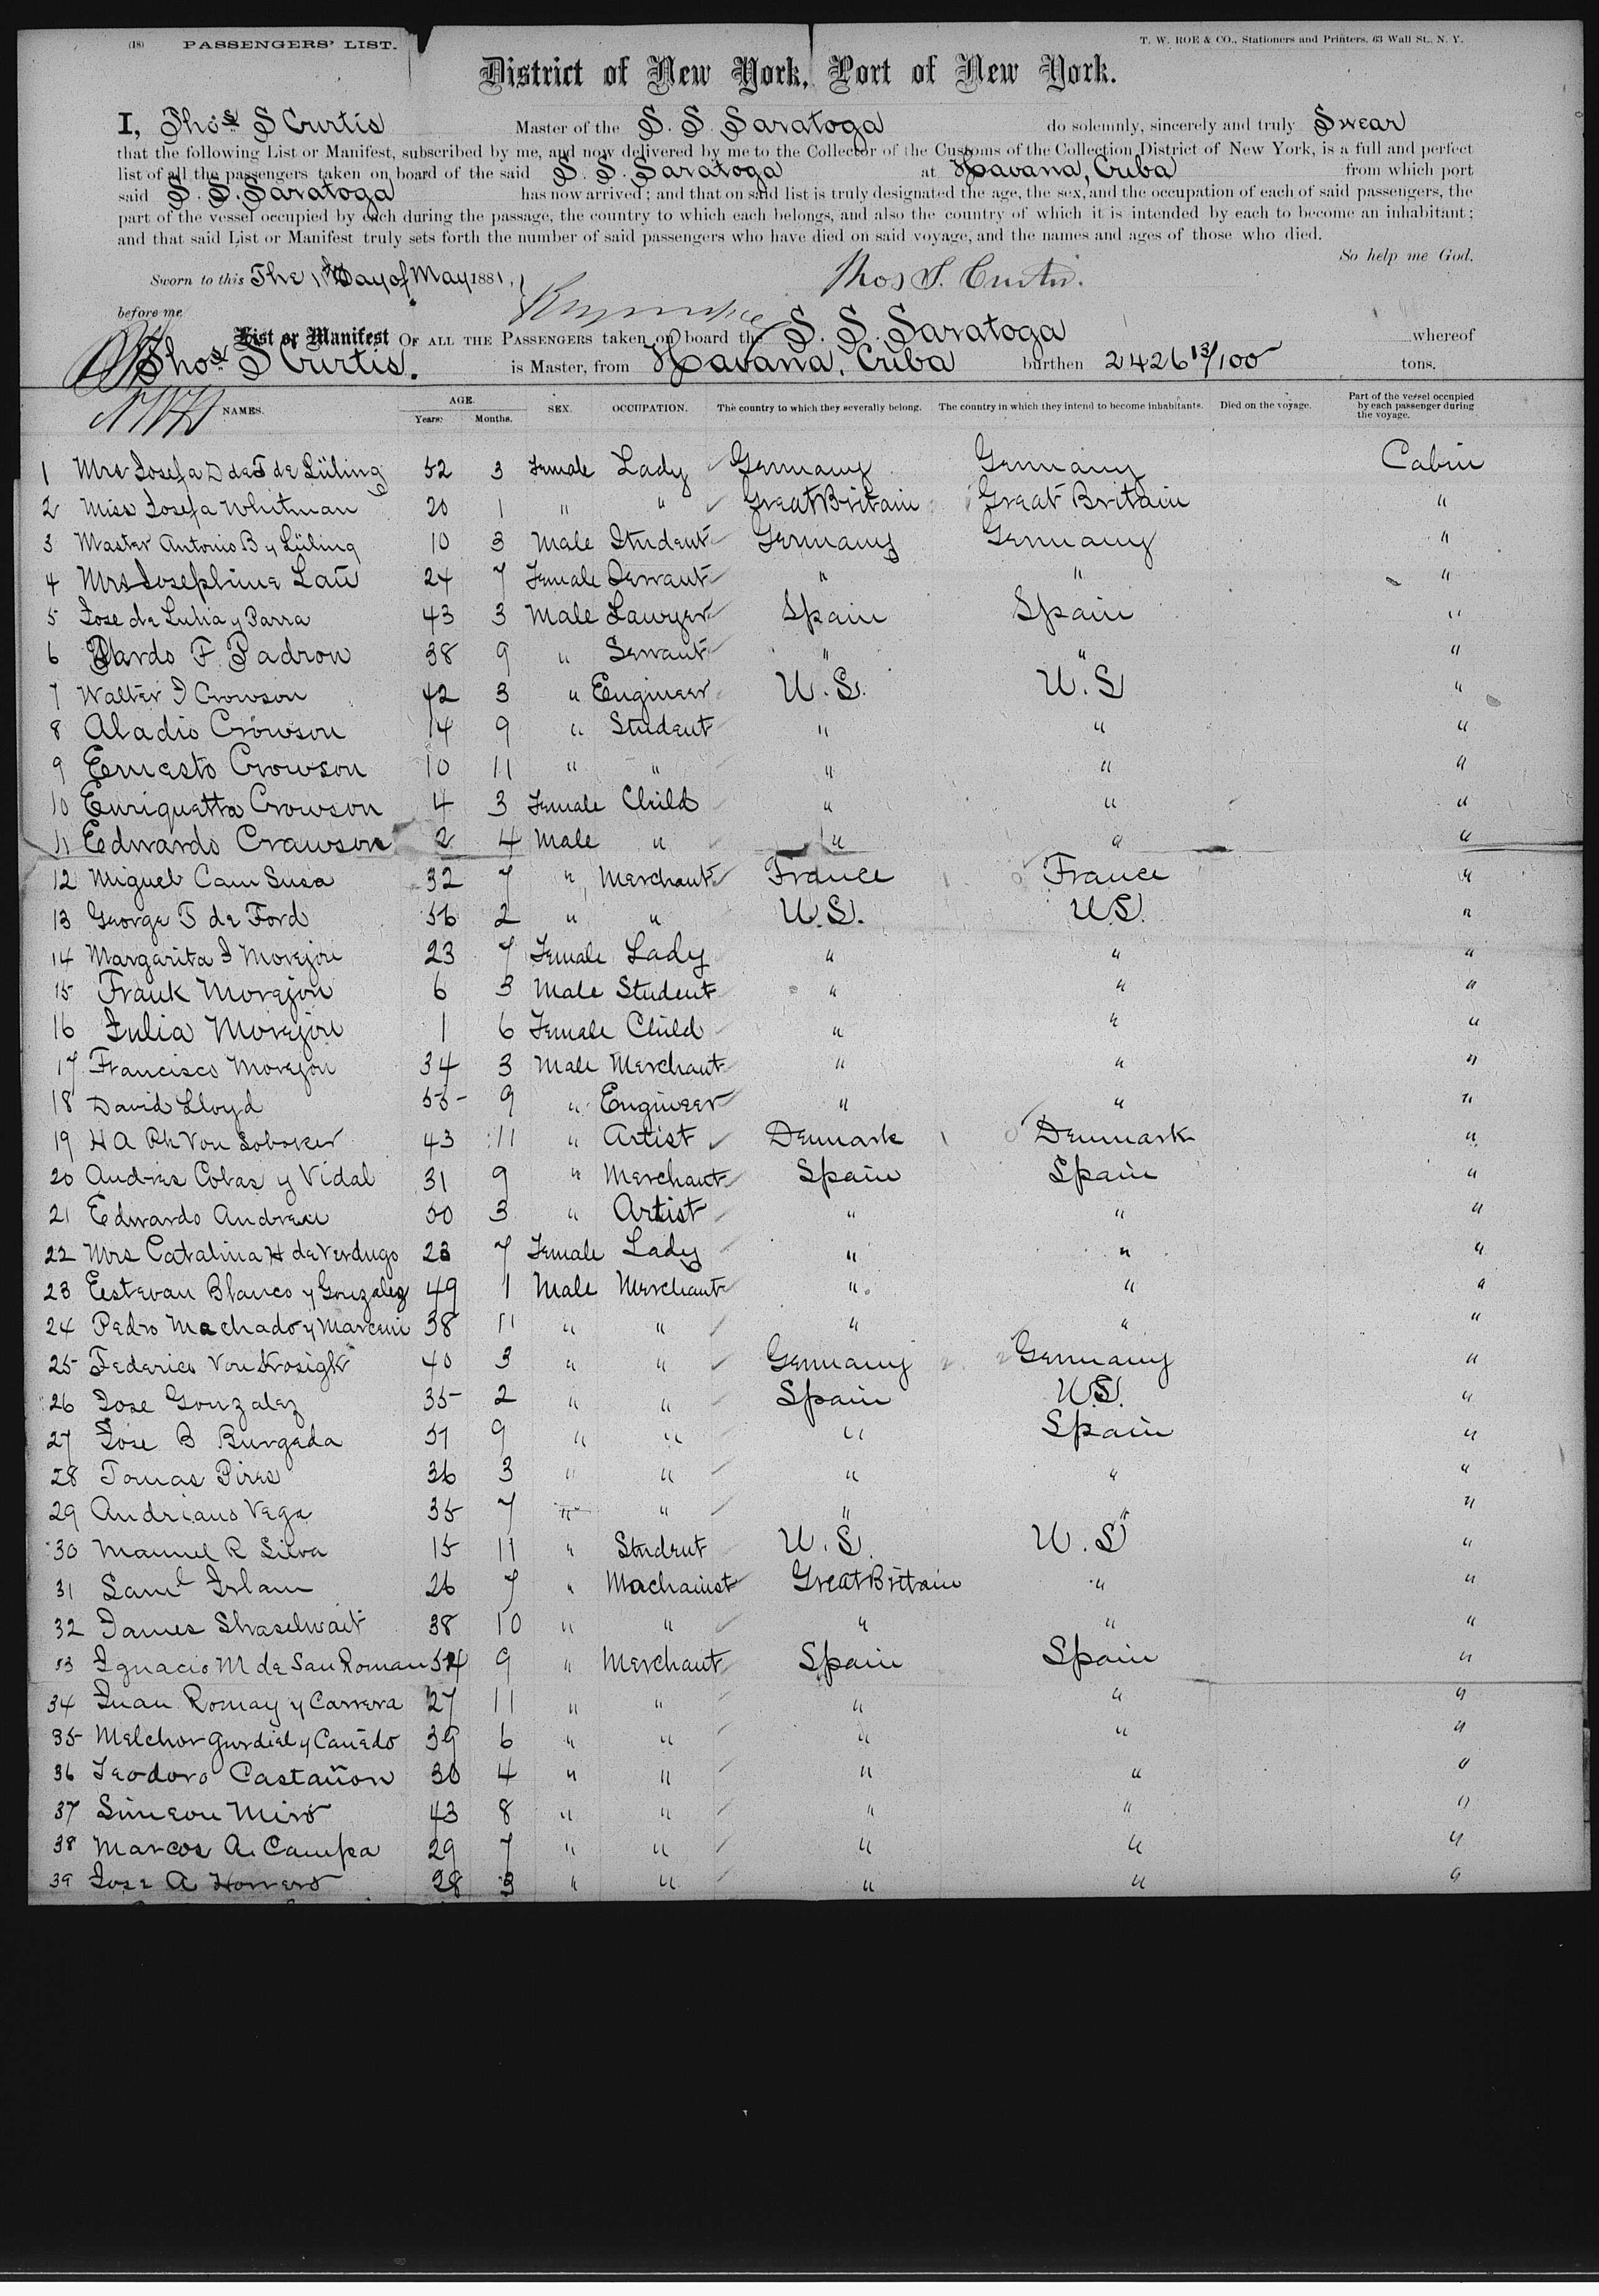 (18) PASSENGERS' LIST.
T. W. ROE & CO., Stationers and Printers, 63 Wall St., N. Y.
District of New York, Port of New York.
I, Thos S Curtis Master of the S. S. Saratoga do solemnly, sincerely and truly Swear
that the following List or Manifest, subscribed by me, and now delivered by me to the Collector of the Customs of the Collection District of New York, is a full and perfect
list of all the passengers taken on board of the said S. S. Saratoga at Havana, Cuba from which port
said S. S. Saratoga has now arrived; and that on said list is truly designated the age, the sex, and the occupation of each of said passengers, the
part of the vessel occupied by each during the passage, the country to which each belongs, and also the country of which it is intended by each to become an inhabitant;
and that said List or Manifest truly sets forth the number of said passengers who have died on said voyage, and the names and ages of those who died.
So help me God.
Sworn to this The Day of May 1881, Thos S. Curtis.
before me
List or Manifest OF ALL THE PASSENGERS taken on board the S. S. Saratoga whereof
Thos S Curtis. is Master, from Havana, Cuba burthen 2426 13/100 tons.
NAMES. AGE. Years. Months. SEX. OCCUPATION. The country to which they severally belong. The country in which they intend to become inhabitants. Died on the voyage. Part of the vessel occupied by each passenger during the voyage.
1 Mrs Josefa D de T de Lüling 52 3 Female Lady Germany Germany Cabin
2 Miss Josefa Whitman 20 1 " " Great Britain Great Britain "
3 Master Antonio B y Lüling 10 3 Male Student Germany Germany "
4 Mrs Josephine Laü 24 7 Female Servant " " "
5 Jose de Luhia y Parra 43 3 Male Lawyer Spain Spain "
6 F. Padron 38 9 " Servant " " "
7 Walter J Crowson 42 3 " Engineer U.S. U.S "
8 Aladio Crowson 14 9 " Student " " "
9 Ernesto Crowson 10 11 " " " " "
10 Enriquetta Crowson 4 3 Female Child " " "
11 Edwardo Crawson 2 4 Male " " " "
12 Miguel Cam Susa 32 7 " Merchant France France "
13 George T de Ford 56 2 " " U.S. U.S. "
14 Margarita J Morejon 23 7 Female Lady " " "
15 Frank Morejon 6 3 Male Student " " "
16 Julia Morejon 1 6 Female Child " " "
17 Francisco Morejon 34 3 Male Merchant " " "
18 David Lloyd 55 9 " Engineer " " "
19 H A Rh Von 43 11 " Artist Denmark Denmark "
20 Andres Cobas y Vidal 31 9 " Merchant Spain Spain "
21 Edwardo Andreu 50 3 " Artist " " "
22 Mrs Catalina H de Verdugo 23 7 Female Lady " " "
23 Eestevan Blanco y Gonzalez 49 1 Male Merchant " " "
24 Pedro Machado y 38 11 " " " " "
25 Federico Von Krosigk 40 3 " " Germany Germany "
26 Jose Gonzalez 35 2 " " Spain U.S. "
27 Jose B Burgada 9 " " " Spain "
28 Tomas Pires 36 3 " " " " "
29 Andriano Vega 35 7 " " " " "
30 Manuel R Silva 15 11 " Student U.S. U.S "
31 Saml Irlam 26 7 " Machainist Great Brittain " "
32 James 38 10 " " " " "
33 Ignacio M de San Roman 54 9 " Merchant Spain Spain "
34 Juan Romay y Carrera 27 11 " " " " "
35 Melchor Gurdiel y Cañedo 39 6 " " " " "
36 Teodoro Castañon 30 4 " " " " "
37 Simeon Miro 43 8 " " " " "
38 Marcos A. Campa 29 7 " " " " "
39 Jose A 28 3 " " " " "